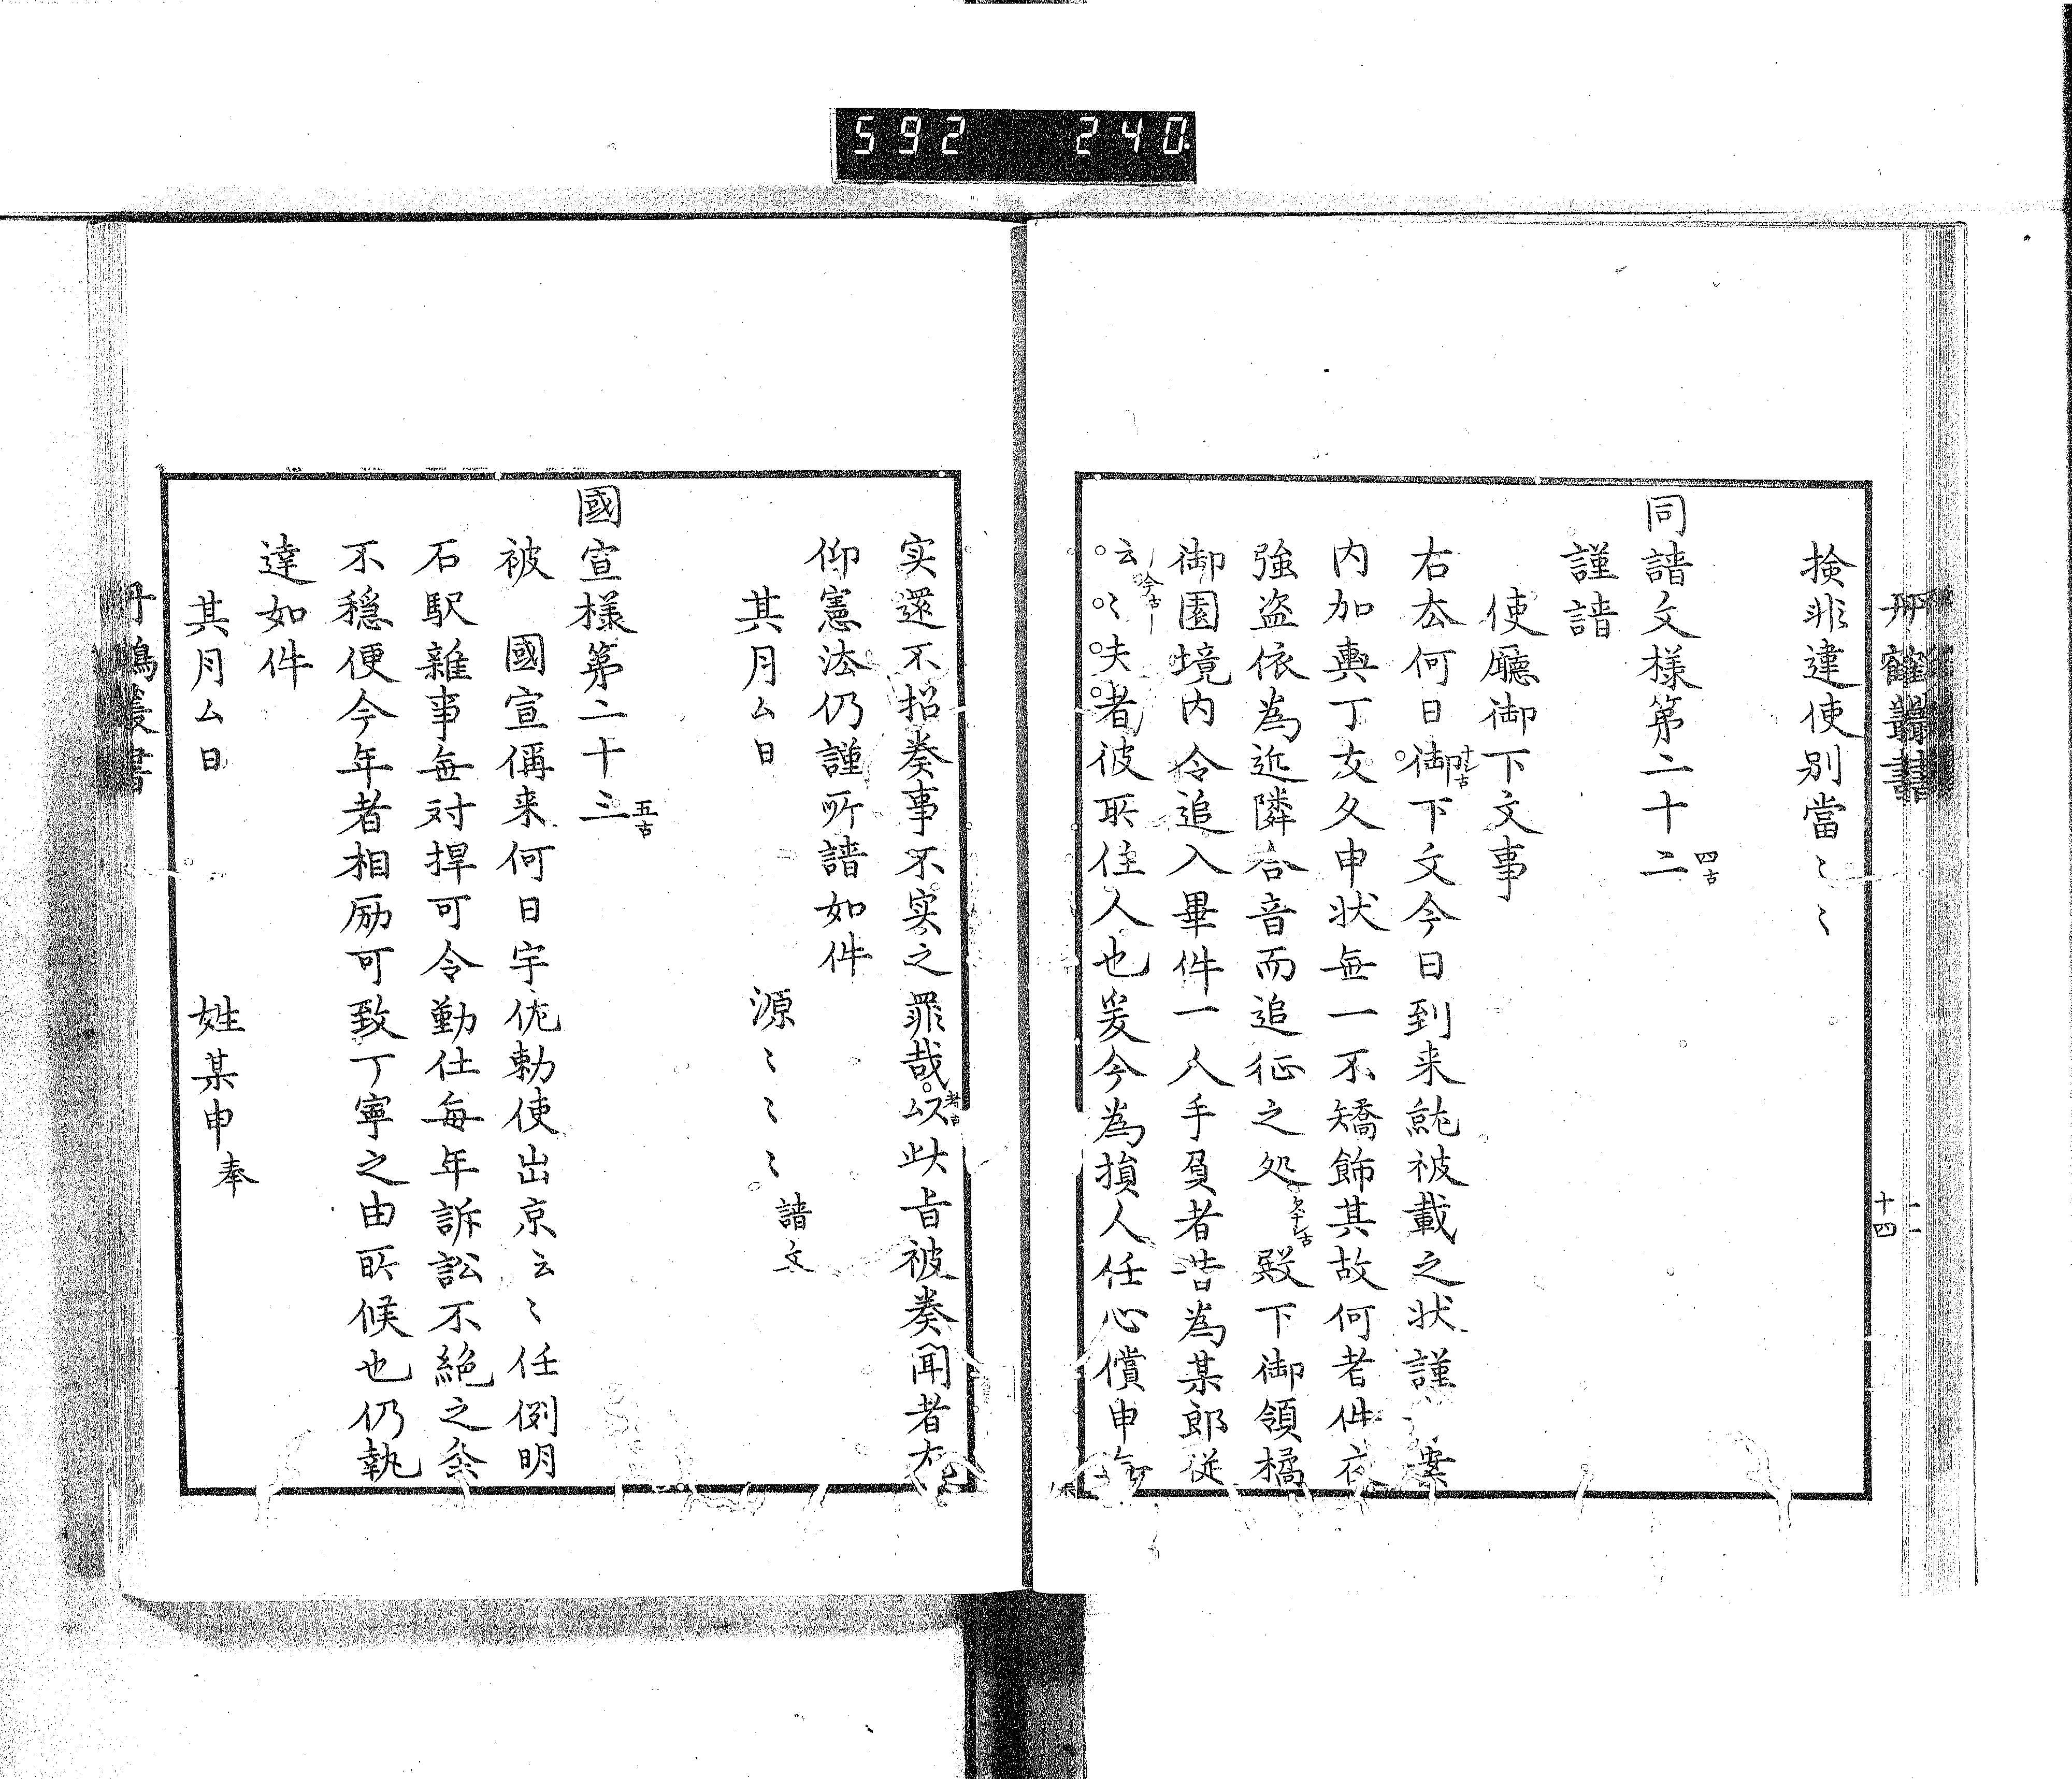 592 240
丹鶴叢書
十四
検非違使別當〻〻
同請文様第二十二 四古
謹請
使廳御下文事
右厺何日御下文今日到来䟽被載之状謹 案
内加輿丁友久申状無一不矯飾其故何者件夜
強盗依為近隣合音而追征之処 殿下御領橘
御園境内令追入畢件一人手負者皆為某郎従
云〻夫者彼所住人也爰今為損人任心償申
实還不招奏事不实之罪哉 此旨被奏聞者
仰憲法仍謹所請如件
其月ム日 源〻〻〻 請文
國宣様第二十三 五古
被 國宣偁来何日宇佐勅使出京云〻任例明
石駅雜事無対捍可令勤仕每年訴訟不絶之条
不穏便今年者相励可致丁寧之由所候也仍執
達如件
其月ム日 姓某申奉
丹鶴叢書